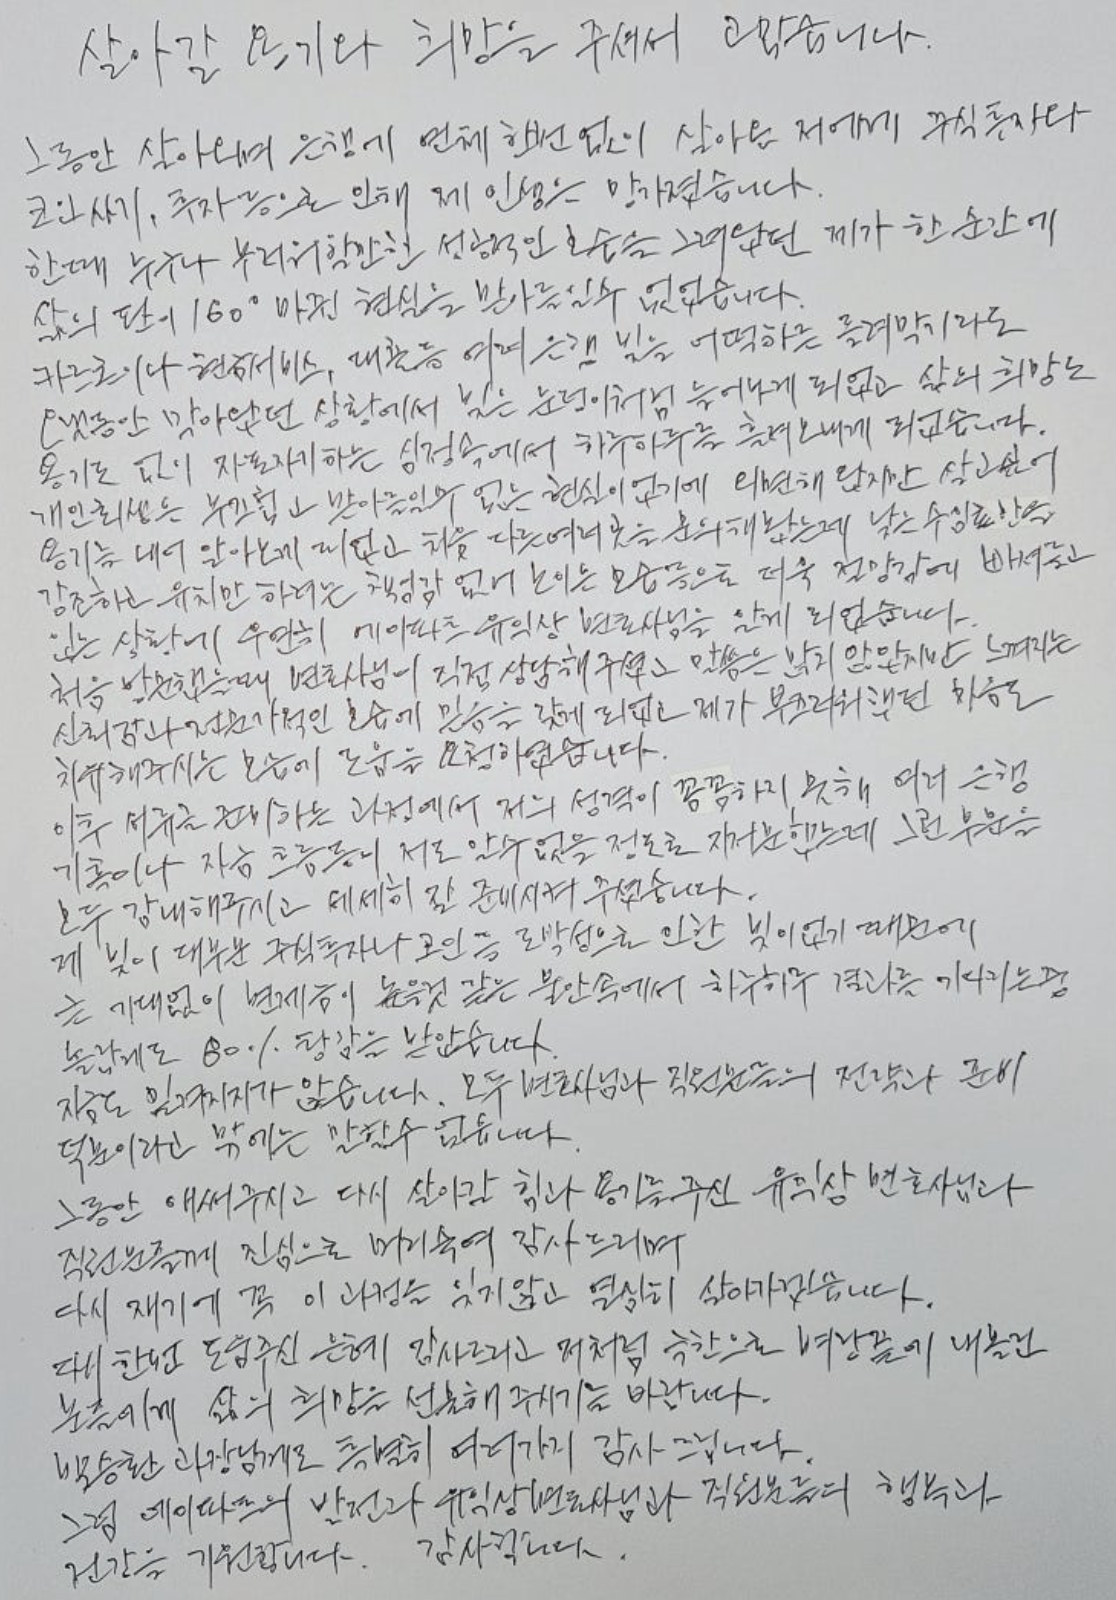 살아갈 용기와 희망을 주셔서 고맙습니다.
그동안 살아오며 은행에 연체 한번 없이 살아온 저에게 주식투자나
코인사기, 투자등으로 인해 제 인생은 망가졌습니다.
한때 누구나 부러워할만한 성공적인 모습을 그려왔던 제가 한 순간에
삶의 판이 160° 바뀐 현실을 받아들일수 없었습니다.
카드론이나 현금서비스, 대출등 여러 은행 빚을 어떡하든 돌려막기라도
오랫동안 막아왔던 상황에서 빚은 눈덩이처럼 늘어나게 되었고 삶의 희망도
용기도 없이 자포자기하는 심정속에서 하루하루를 흘려보내게 되었습니다.
개인회생은 부끄럽고 받아들일수 없는 현실이었기에 외면해 왔지만 살고싶어
용기를 내어 알아보게 되었고 처음 다른여러곳을 문의해봤는데 낮은수임료만을
강조하고 유치만 하려는 책임감 없어 보이는 모습들으로 더욱 절망감에 빠져들고
있는 상황에 우연히 에이파트 유익상 변호사님을 알게 되었습니다.
처음 방문했을때 변호사님이 직접 상담해주셨고 말씀은 많지 않았지만 느껴지는
신뢰감과 전문가적인 모습에 믿음을 갖게 되었고 제가 부끄러워했던 마음도
치유해주시는 모습에 도움을 요청하였습니다.
이후 서류를 준비하는 과정에서 저의 성격이 꼼꼼하지 못해 여러 은행
기록이나 자금 흐름등이 저도 알수없을 정도로 지저분했는데 그런 부분을
모두 감내해주시고 세세히 잘 준비시켜 주셨습니다.
제 빚이 대부분 주식투자나 코인등 도박성으로 인한 빚이었기 때문에
큰 기대없이 변제금이 높을것 같은 불안속에서 하루하루 결과를 기다리는중
놀랍게도 80% 탕감을 받았습니다.
지금도 믿겨지지가 않습니다. 모두 변호사님과 직원분들의 전략과 준비
덕분이라고 밖에는 말할수 없습니다.
그동안 애써주시고 다시 살아갈 힘과 용기를 주신 유익상 변호사님과
직원분들께 진심으로 머리숙여 감사드리며
다시 재기에 꼭 이 과정을 잊지않고 열심히 살아가겠습니다.
다시 한번 도움주신 은혜 감사드리고 저처럼 극한으로 벼랑끝에 내몰린
분들에게 삶의 희망을 선물해 주시기를 바랍니다.
박승환 과장님께도 특별히 여러가지 감사드립니다.
그럼 에이파트의 발전과 유익상변호사님과 직원분들의 행복과
건강을 기원합니다. 감사합니다.